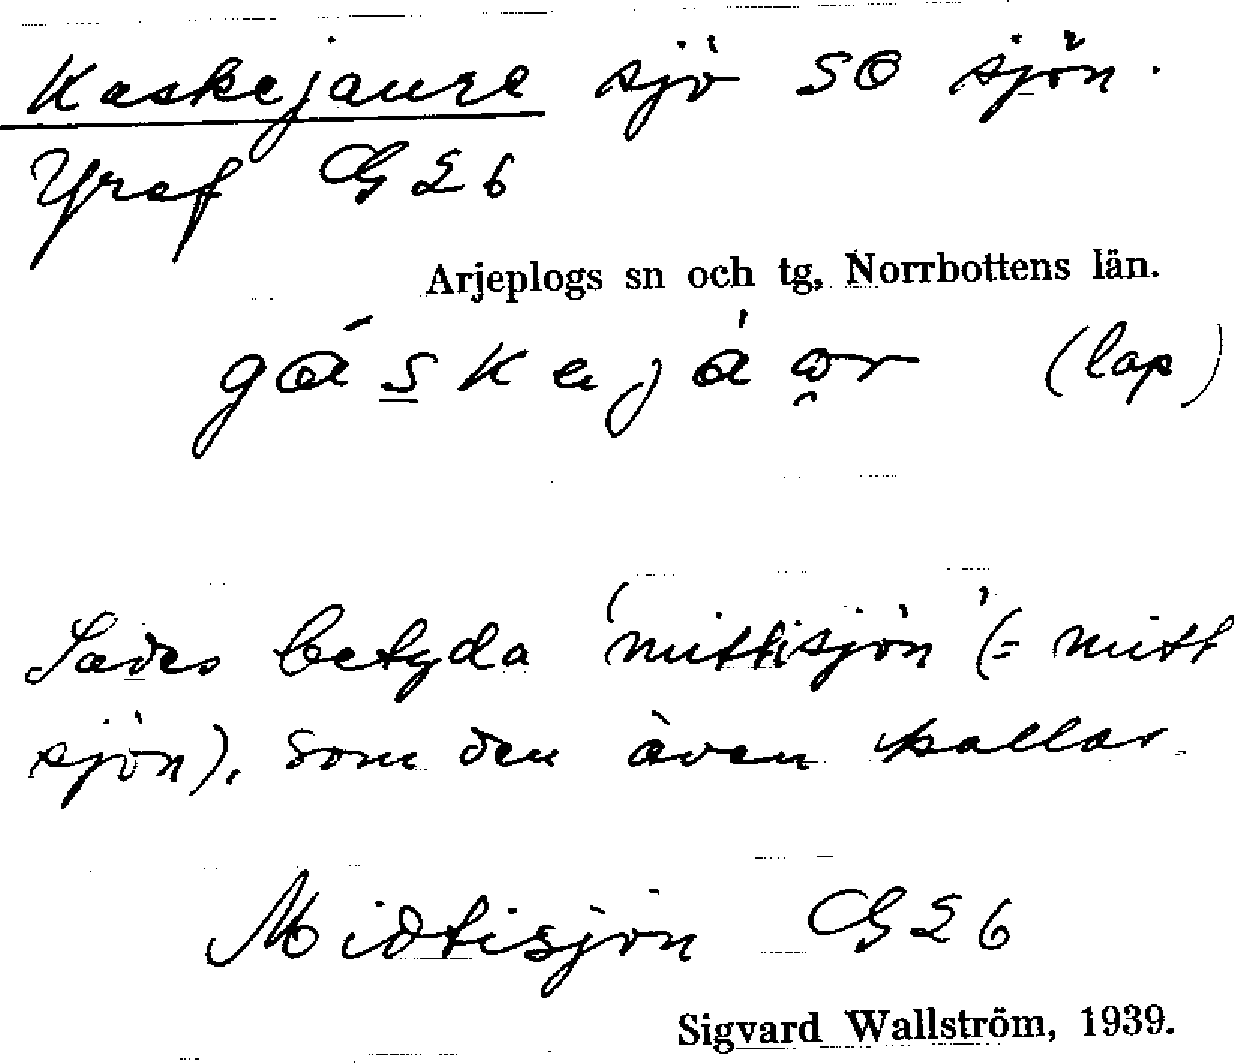 Kaskejaure sjö SO sjön.
Yraf G26
Arjeplogs sn och tg, Norrbottens län.
gáskejáor (lap)
Sades betyda 'mittisjön' (= mitt
sjön), som den även kallas
Midtisjön G26
Sigvard Wallström, 1939.